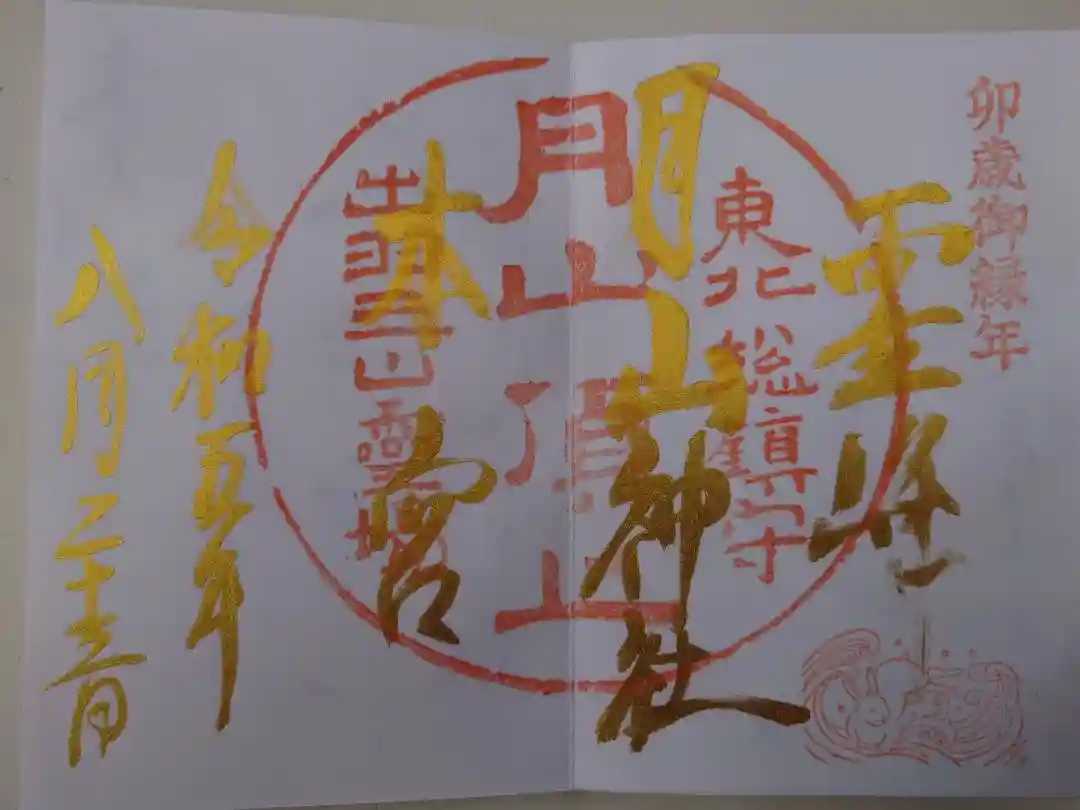 卯歳御縁年
霊峰
東北総鎮守
月山神社
月山頂上
本宮
出羽三山靈場
令和五年
八月二十三日